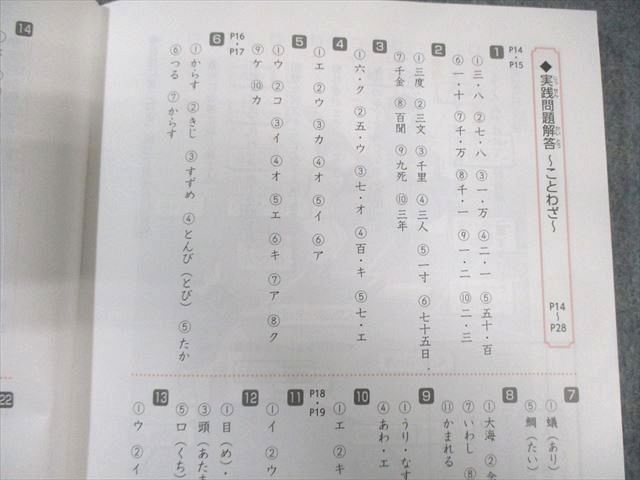 ◆実践問題解答 ~ことわざ~
P14~P28
1
P14・P15
①三・八 ②七・八 ③一・万 ④二・一 ⑤五十・百
⑥一・十 ⑦千・万 ⑧千・一 ⑨一・二 ⑩二・三
2
①三度 ②三文 ③千里 ④三人 ⑤一寸 ⑥七十五日
⑦千金 ⑧百聞 ⑨九死 ⑩三年
3
①六・ク ②五・ウ ③七・オ ④百・キ ⑤七・エ
4
①エ ②ウ ③カ ④オ ⑤イ ⑥ア
5
①ウ ②コ ③イ ④オ ⑤エ ⑥キ ⑦ア ⑧ク
⑨ケ ⑩カ
6
P16・P17
①からす ②きじ ③すずめ ④とんび(とび) ⑤たか
⑥つる ⑦からす
7
①蟻(あり)
⑤鯛(たい)
8
①大海 ②
⑦いわし ⑧
⑪かまれる
9
①うり・なす
④あわ・エ
10
①エ ②キ
11
P18・P19
①イ ②ウ
12
①目(め)・
③頭(あたま
⑤口(くち)
13
①ウ ②イ
14
22